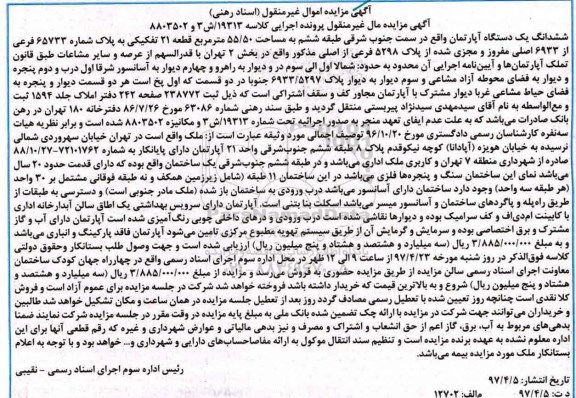 آگهی مزایده اموال غیرمنقول (اسناد رهنی)
آگهی مزایده مال غیرمنقول پرونده اجرایی کلاسه ۱۹۳۱۳/ش۳ و ۸۸۰۳۵۰۲
ششدانگ یک دستگاه آپارتمان واقع در سمت جنوب شرقی طبقه ششم به مساحت ۵۵/۵۰ مترمربع قطعه ۲۱ تفکیکی به پلاک شماره ۶۵۷۳۳ فرعی
از ۶۹۳۳ اصلی مفروز و مجزی شده از پلاک ۵۲۹۸ فرعی از اصلی مذکور واقع در بخش ۲ تهران با قدرالسهم از عرصه و سایر مشاعات طبق قانون
تملک آپارتمان‌ها و آیین‌نامه اجرایی آن محدوده به حدود: شمالا اول الی سوم در و دیوار به راهرو و چهارم دیوار به آسانسور شرقا اول درب و دوم پنجره
و دیوار به فضای محوطه آزاد مشاعی و سوم دیوار به دیوار پلاک ۶۹۳۳/۵۲۹۷ جنوبا در دو قسمت که اول پخ است هر دو قسمت دیوار و پنجره به
فضای حیاط مشاعی غربا دیوار مشترک با آپارتمان مجاور کف و سقف اشتراکی است که ذیل ثبت ۲۳۸۷۷۲ صفحه ۲۴۲ دفتر املاک جلد ۱۵۹۴ ثبت
و مع‌الواسطه به نام آقای سیدمهدی سیدنژاد پیربستی منتقل گردید و طبق سند رهنی شماره ۶۳۰۸۶ مورخ ۸۶/۷/۲۶ دفترخانه ۱۸۰ تهران در رهن
بانک صادرات می‌باشد که به علت عدم ایفای تعهد منجر به صدور اجرائیه تحت شماره ۱۹۳۱۳/ش۳ و مکانیزه ۸۸۰۳۵۰۲ شده است و برابر نظریه هیات
سه‌نفره کارشناسان رسمی دادگستری مورخ ۹۶/۱۰/۲۰ توصیف اجمالی مورد وثیقه عبارت است از: ملک واقع است در تهران خیابان سهروردی شمالی
نرسیده به خیابان هویزه (آپادانا) کوچه نیکوقدم پلاک طبقه ششم جنوب‌شرقی واحد ۲۱ آپارتمان دارای پایانکار به شماره ۷۲۱۰۱۷۶۲-۸۸/۱۰/۲۷
صادره از شهرداری منطقه ۷ تهران و کاربری ملک اداری می‌باشد و در طبقه ششم جنوب‌شرقی یک ساختمان واقع بوده که دارای قدمت حدود ۲۰ سال
می‌باشد نمای این ساختمان سنگ و پنجره‌ها فلزی می‌باشد در این ساختمان ۱۱ طبقه (شامل زیرزمین همکف و نه طبقه فوقانی مشتمل بر ۳۰ واحد
(هر طبقه سه واحد) وجود دارد ساختمان دارای آسانسور می‌باشد درب ورودی به ساختمان باز شده (ملک مادر جنوبی است) و دسترسی به طبقات از
طریق راه‌پله و پاگردهای ساختمان و آسانسور میسر می‌باشد اسکلت بنا بتنی است. آپارتمان دارای سرویس بهداشتی یک اطاق سالن آبدارخانه اداری
با کابینت ام‌دی‌اف و کف سرامیک بوده و دیوارها نقاشی شده است درب ورودی و درب‌های داخلی چوبی رنگ‌آمیزی شده است آپارتمان دارای آب و گاز
مشترک و برق اختصاصی بوده و سرمایش و گرمایش آن از طریق سیستم تهویه مطبوع مرکزی تامین می‌شود آپارتمان فاقد پارکینگ و انباری می‌باشد
و به مبلغ ۳/۸۸۵/۰۰۰/۰۰۰ ریال (سه میلیارد و هشتصد و هشتاد و پنج میلیون ریال) ارزیابی شده است و جهت وصول طلب بستانکار وحقوق دولتی
کلاسه فوق‌الذکر در روز شنبه مورخه ۹۷/۴/۲۳ از ساعت ۹ الی ۱۲ ظهر در محل اداره سوم اجرای اسناد رسمی واقع در چهارراه جهان کودک ساختمان
معاونت اجرای اسناد رسمی سالن مزایده از طریق مزایده حضوری به فروش می‌رسد. مزایده از مبلغ ۳/۸۸۵/۰۰۰/۰۰۰ ریال (سه میلیارد و هشتصد و
هشتاد و پنج میلیون ریال) شروع و به بالاترین قیمت که خریدار داشته باشد فروخته خواهد شد شرکت در جلسه مزایده برای عموم آزاد است و فروش
کلا نقدی است چنانچه روز تعیین شده با تعطیل رسمی مصادف گردد روز بعد از تعطیل جلسه مزایده در همان ساعت و مکان تشکیل خواهد شد طالبین
و خریداران می‌توانند جهت شرکت در مزایده با ارائه چک تضمین شده بانک ملی به مبلغ پایه مزایده در وقت مقرر در جلسه مزایده شرکت نمایند ضمنا
بدهی‌های مربوط به آب، برق، گاز اعم از حق انشعاب و اشتراک و مصرف و نیز بدهی مالیاتی و عوارض شهرداری و غیره که رقم قطعی آنها برای این
اداره معلوم نشده به عهده برنده مزایده است و تنظیم سند انتقال موکول به ارائه مفاصاحساب‌های دارایی و شهرداری و... خواهد بود و با توجه به اعلام
بستانکار ملک مورد مزایده بیمه می‌باشد.
رئیس اداره سوم اجرای اسناد رسمی - نقیبی
تاریخ انتشار: ۹۷/۴/۵
د ت: ۹۷/۴/۵ م‌الف: ۱۳۷۰۲